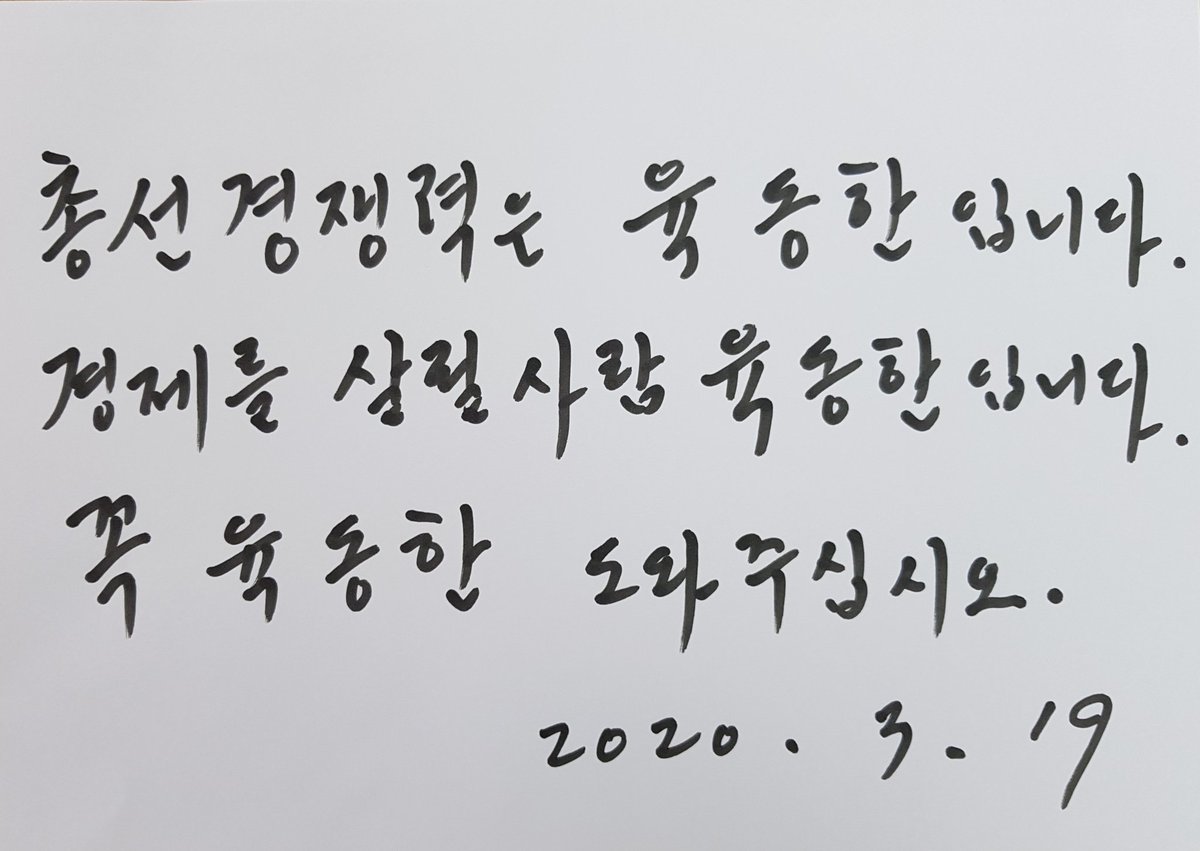 총선 경쟁력은 육동한입니다.
경제를 살릴 사람 육동한입니다.
꼭 육동한 도와주십시오.
2020. 3. 19